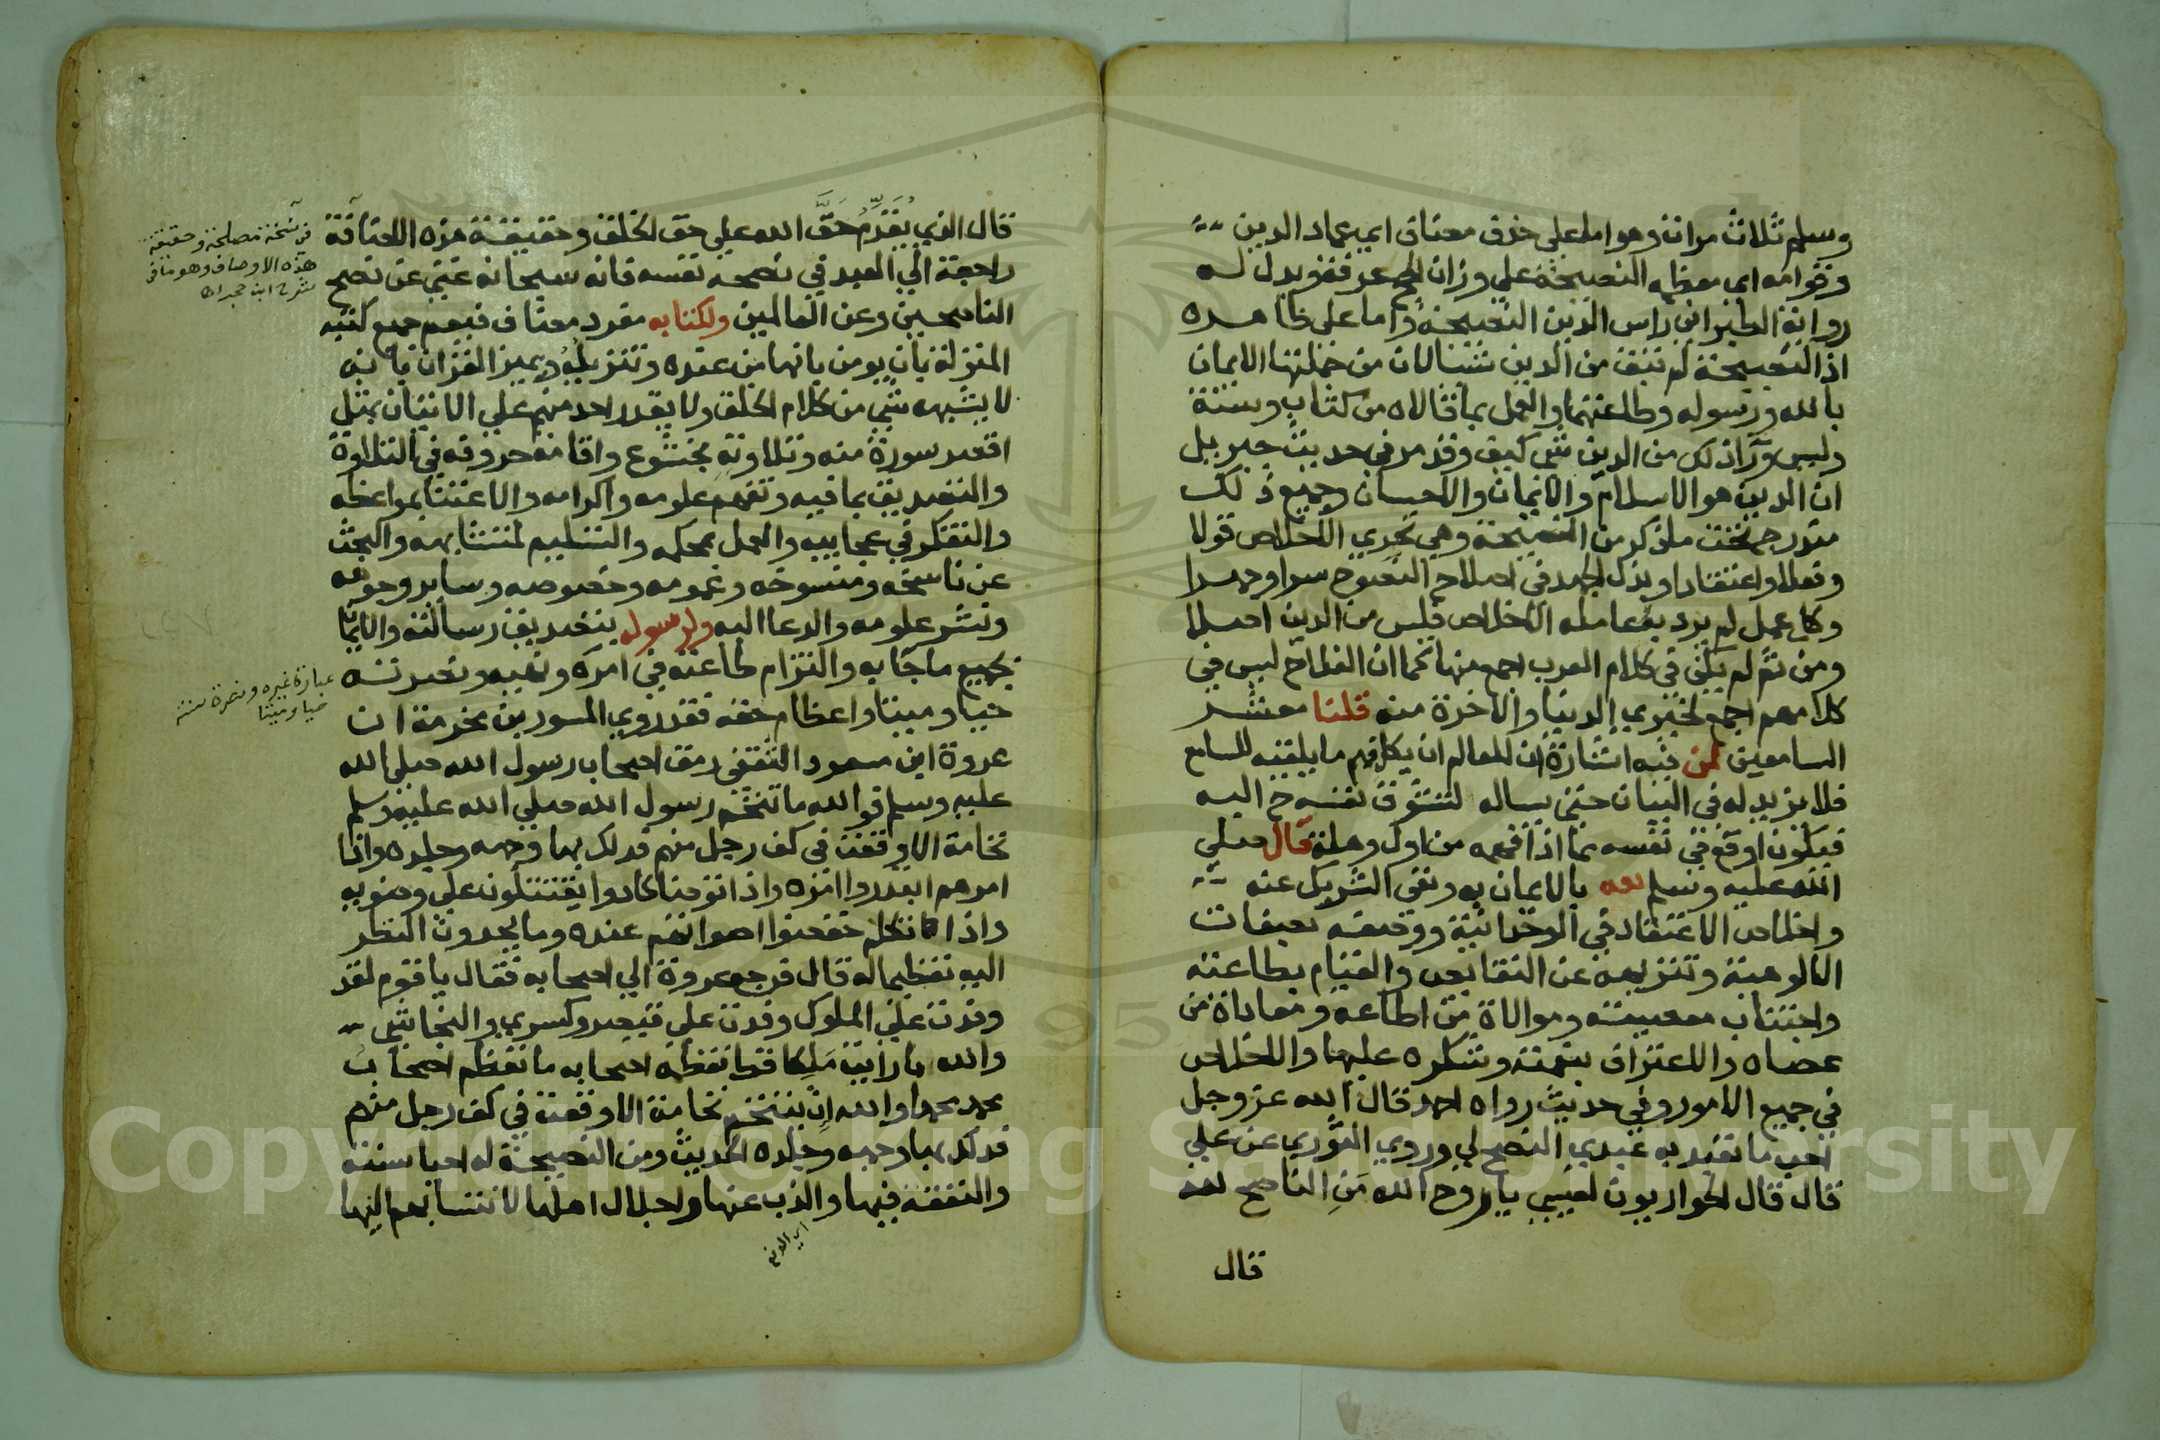 وسلم ثلاث مرات وهو اما على حذف مضاف اي عماد الدين
وقوامه اي معظمه النصيحة على وزان الحج عرفة ويدل له
رواية الطبراني راس الدين النصيحة واما على ظاهره
اذ النصيحة لم تبق من الدين شيئا لان من جملتها الايمان
بالله ورسوله وطاعتهما والعمل بما قالاه من كتاب وسنة
وليس وراء ذلك من الدين شي كيف وقد مر في حديث جبريل
ان الدين هو الاسلام والايمان والاحسان وجميع ذلك
مندرج تحت ما ذكر من النصيحة وهي تحري الاخلاص قولا
وفعلا واعتقادا وبذل الجهد في اصلاح المنصوح سرا وجهرا
وكل عمل لم يرد به عامله الاخلاص فليس من الدين اصلا
ومن ثم لم يكن في كلام العرب اجمع منها كما ان الفلاح ليس في
كلامهم اجمع لخيري الدنيا والاخرة منه قلنا معشر
السامعين لمن فيه اشارة ان للعالم ان يكل فهم ما يلقيه للسامع
فلا يزيد له في البيان حتى يساله لتتشوق نفسه ح اليه
فيكون اوقع في نفسه مما اذا فهمه من اول وهلة قال صلى
الله عليه وسلم لله بالايمان به ونفي الشريك عنه
واخلاص الاعتقاد في الوحدانية ووصفه بصفات
الالوهية وتنزيهه عن النقايص والقيام بطاعته
واجتناب معصيته وموالاة من اطاعه ومعاداة من
عصاه والاعتراف بنعمته وشكره عليها والاخلاص
في جميع الامور وفي حديث رواه احمد قال الله عز وجل
احب ما تعبد به عبدي النصح لي وروي الثوري عن علي
قال قال الحواريون لعيسى يا روح الله من الناصح لله
قال
قال الذي يقدم حق الله على حق الخلق وحقيقة هذه الاضافة
راجعة الى العبد في نصحه نفسه فانه سبحانه غني عن نصح
الناصحين وعن العالمين ولكتابه مفرد مضاف فيعم جميع كتبه
المنزلة بان يومن بانها من عنده وتنزيله ويميز القران بانه
لا يشبهه شي من كلام الخلق ولا يقدر احد منهم على الاتيان بمثل
اقصر سورة منه وتلاوته بخشوع واقامة حروفه في التلاوة
والتصديق بما فيه وتفهم علومه واكرامه والاعتنا بمواعظه
والتفكر في عجايبه والعمل بمحكمه والتسليم لمتشابهه والبحث
عن ناسخه ومنسوخه وعمومه وخصوصه وساير وجوهه
ونشر علومه والدعا اليه ولرسوله بتصديق رسالته والايمان
بجميع ما جا به والتزام طاعته في امره ونهيه ونصرته
حيا وميتا واعظام حقه فقد روي المسور بن مخرمة ان
عروة ابن مسعود الثقفي رمق اصحاب رسول الله صلى الله
عليه وسلم فوالله ما تنخم رسول الله صلى الله عليه وسلم
نخامة الا وقعت في كف رجل منهم فدلك بها وجهه وجلده واذا
امرهم ابتدروا امره واذا توضا كادوا يقتتلون على وضويه
واذا تكلم خفضوا اصواتهم عنده وما يحدون النظر
اليه تعظيما له قال فرجع عروة الى اصحابه فقال يا قوم لقد
وفدت على الملوك وفدت على قيصر وكسرى والنجاشي
والله ما رايت ملكا قط تعظمه اصحابه ما تعظم اصحاب
محمد محمدا والله ان يتنخم نخامة الا وقعت في كف رجل منهم
فدلك بها وجهه وجلده الحديث ومن النصيحة له احيا سنته
والتفقه فيها والذب عنها واجلال اهلها لانتسابهم اليها
في نسخة مصلحة وحقيقة
هذه الاوصاف وهو منافي
شرح ابن حجر
عبارة غيره ونصرة سنته
حيا وميتا